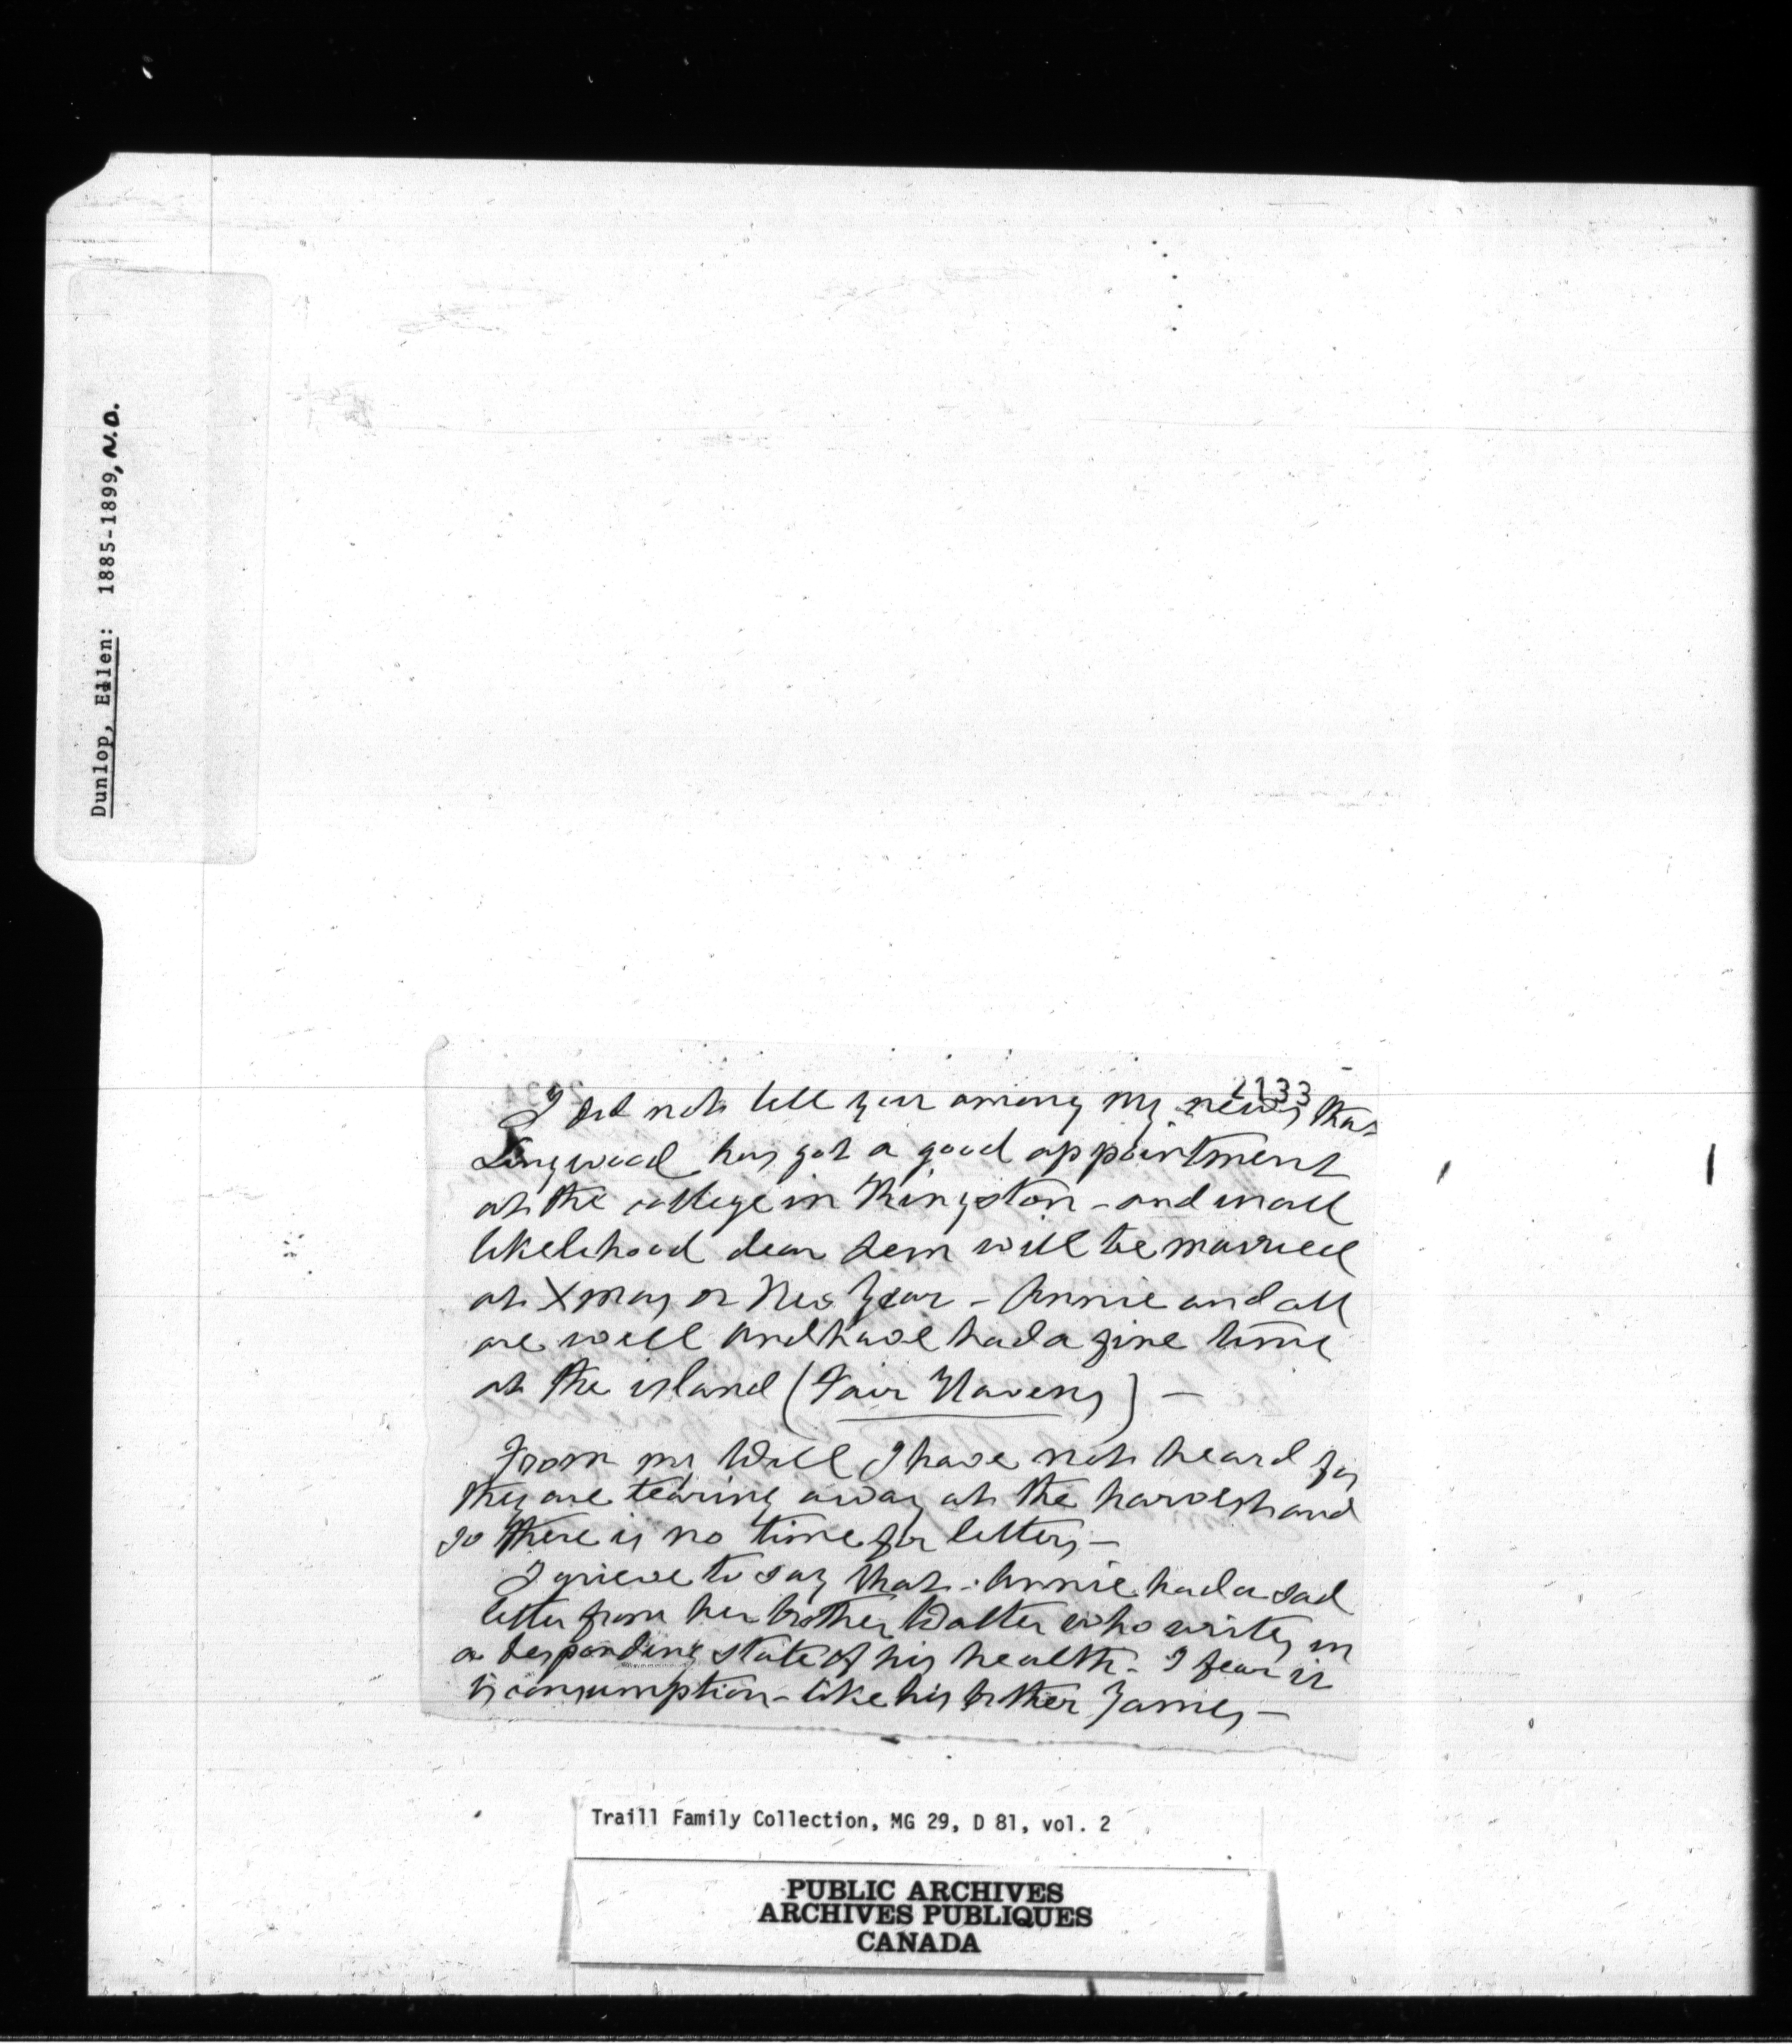 Dunlop, Ellen: 1885-1899, N.D.
2133
I did not tell you among my news that
Longwood has got a good appointment
at the college in Kingston - and in all
likelihood dear will be married
at Xmas or New Year - Annie and all
are well and have had a fine time
at the island (Fair Havens) -
From my Will I have not heard for
they are tearing away at the harvest and
so there is no time for letters -
I grieve to say that Annie had a sad
letter from her brother Walter who writes in
a desponding state of his health - I fear it
is consumption - like his brother James -
Traill Family Collection, MG 29, D 81, vol. 2
PUBLIC ARCHIVES
ARCHIVES PUBLIQUES
CANADA